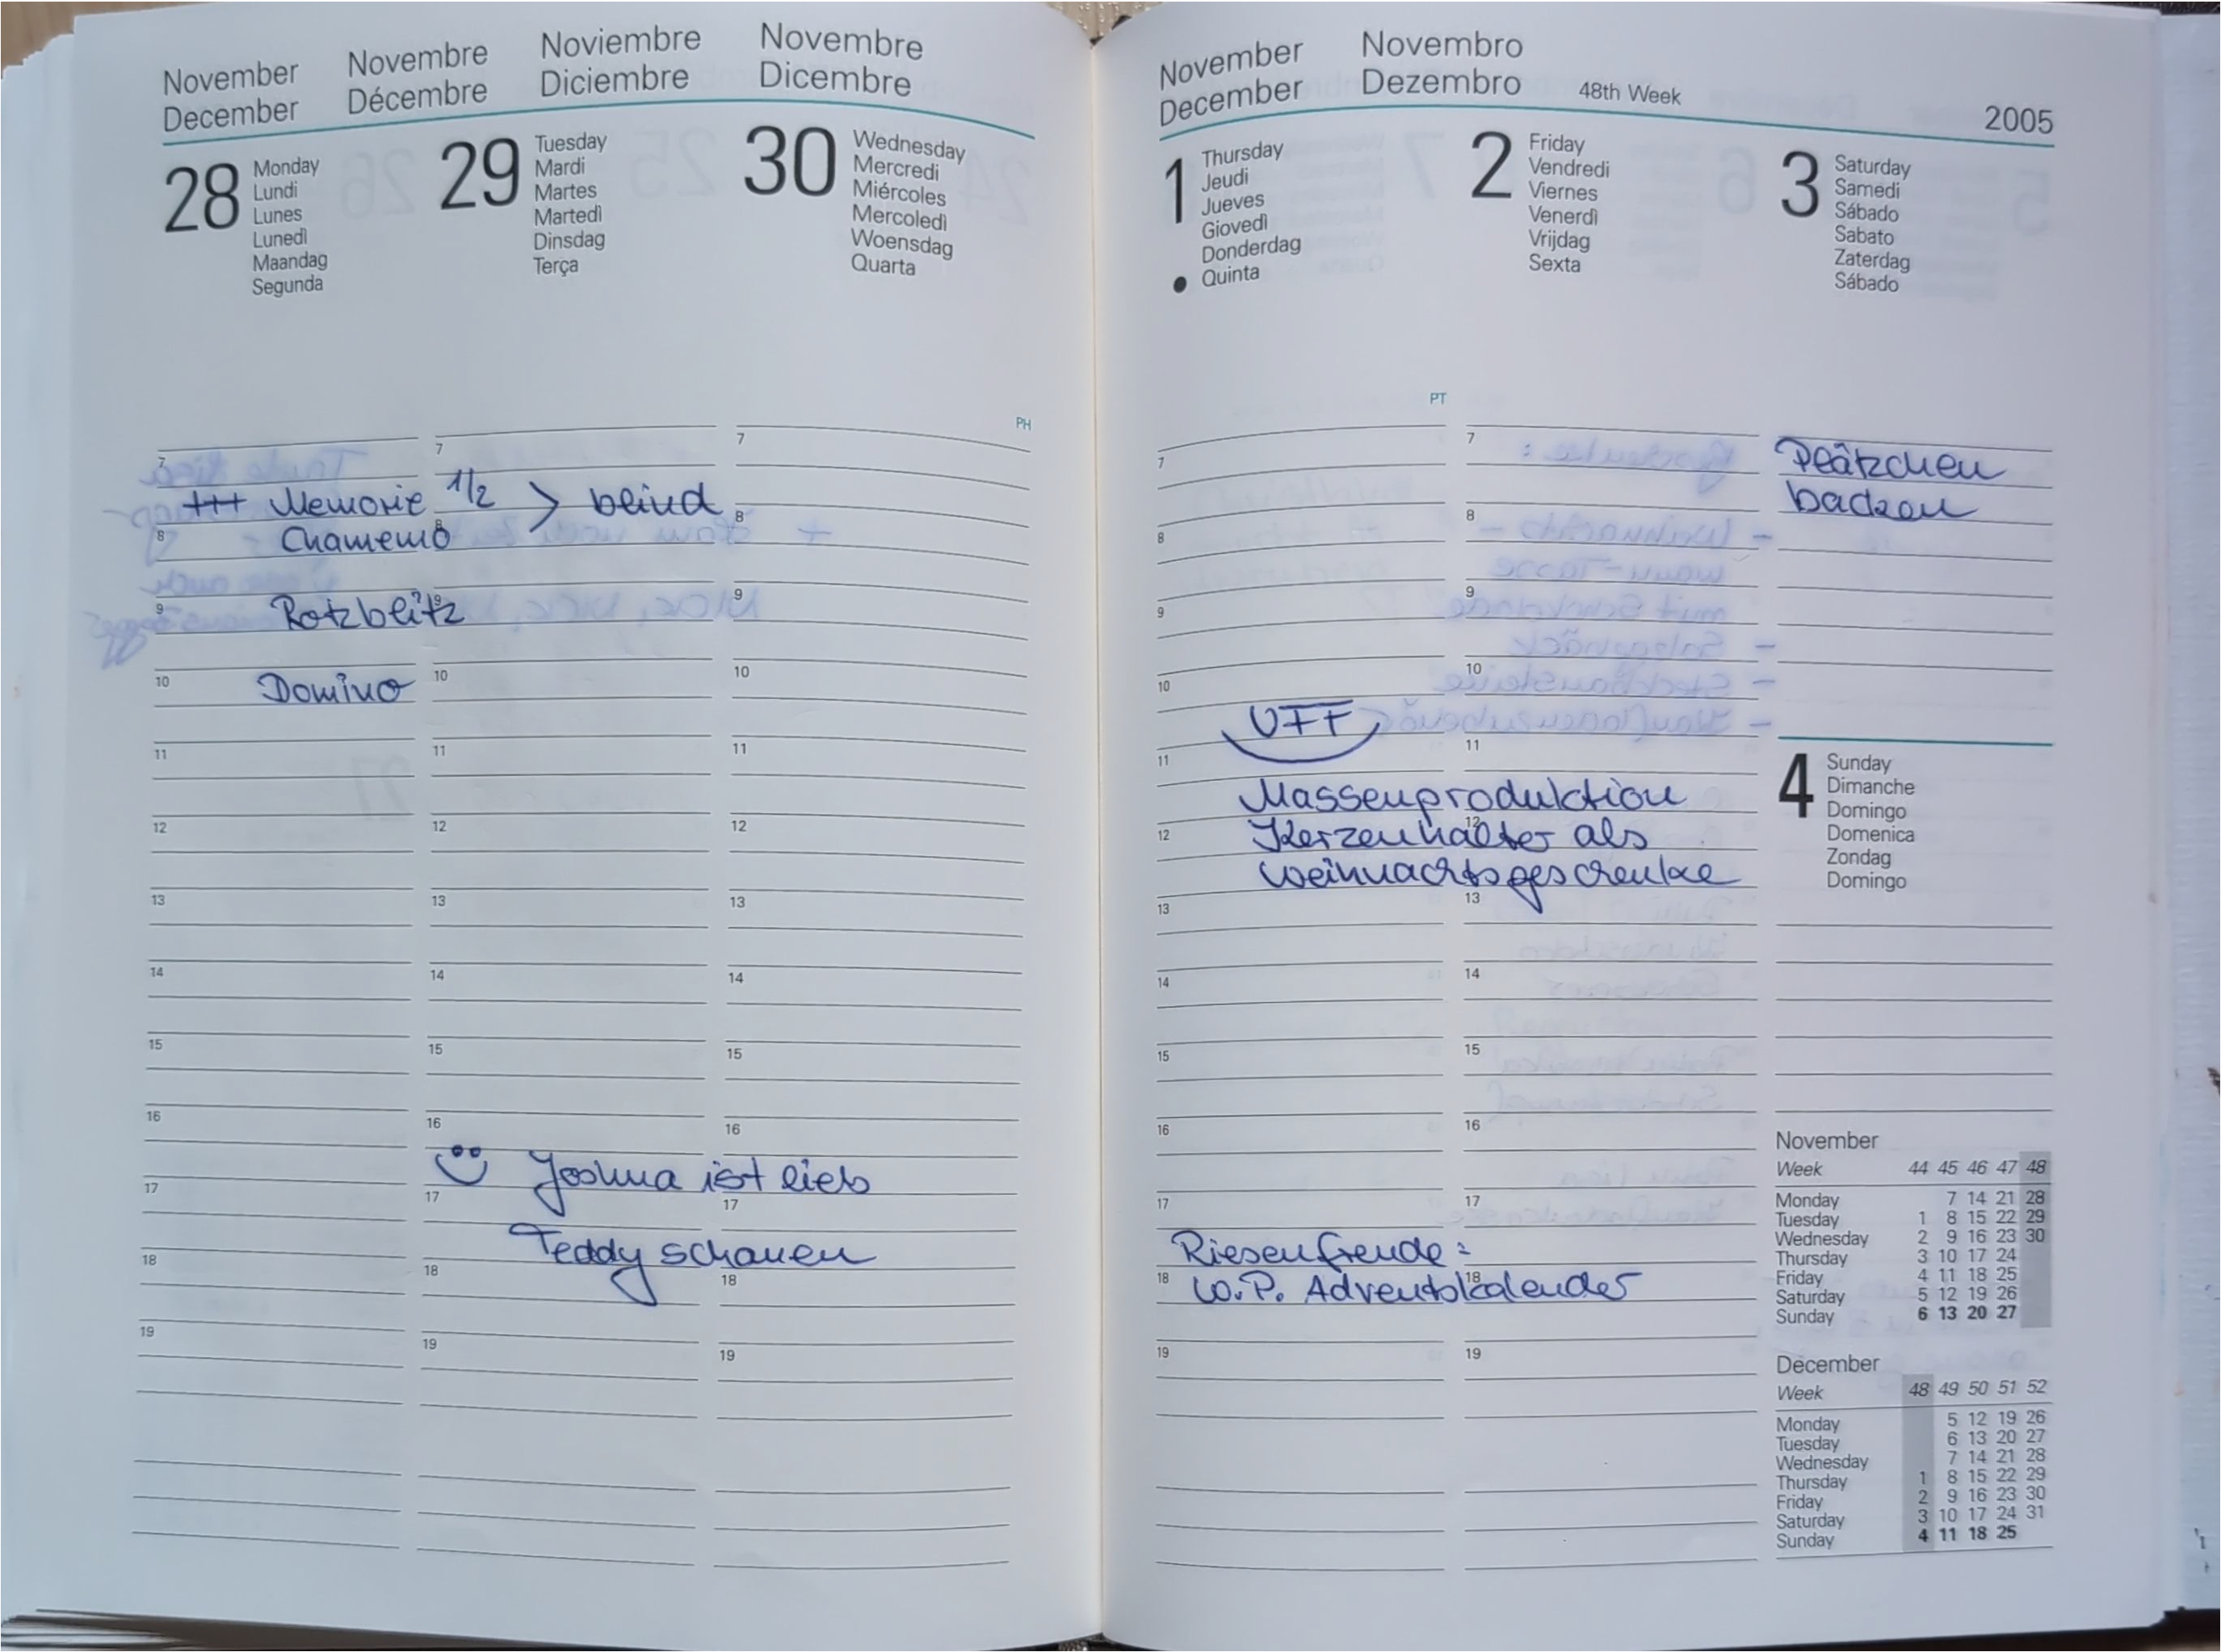 November Novembre Noviembre Novembre
December Décembre Diciembre Dicembre
28 Monday
Lundi
Lunes
Lunedì
Maandag
Segunda
29 Tuesday
Mardi
Martes
Martedì
Dinsdag
Terça
30 Wednesday
Mercredi
Miércoles
Mercoledì
Woensdag
Quarta
PH
7 7 7
+++ Memorie 1/2 > blind
8 8 8
Chamemo
9 9 9
Rotzblitz
10 10 10
Domino
11 11 11
12 12 12
13 13 13
14 14 14
15 15 15
16 16 16
Joshua ist lieb
17 17 17
Teddy schauen
18 18 18
19 19 19
November Novembro
December Dezembro 48th Week 2005
1 Thursday
Jeudi
Jueves
Giovedì
Donderdag
Quinta
2 Friday
Vendredi
Viernes
Venerdì
Vrijdag
Sexta
3 Saturday
Samedi
Sábado
Sabato
Zaterdag
Sábado
PT
7 7
8 8
9 9
10 10
UFF
11 11
Massenproduktion
12 12
Kerzenhalter als
Weihnachtsgeschenke
13 13
14 14
15 15
16 16
17 17
Riesenfreude:
18 18
W.P. Adventskalender
19 19
Plätzchen
backen
4 Sunday
Dimanche
Domingo
Domenica
Zondag
Domingo
November
Week 44 45 46 47 48
Monday 7 14 21 28
Tuesday 1 8 15 22 29
Wednesday 2 9 16 23 30
Thursday 3 10 17 24
Friday 4 11 18 25
Saturday 5 12 19 26
Sunday 6 13 20 27
December
Week 48 49 50 51 52
Monday 5 12 19 26
Tuesday 6 13 20 27
Wednesday 7 14 21 28
Thursday 1 8 15 22 29
Friday 2 9 16 23 30
Saturday 3 10 17 24 31
Sunday 4 11 18 25